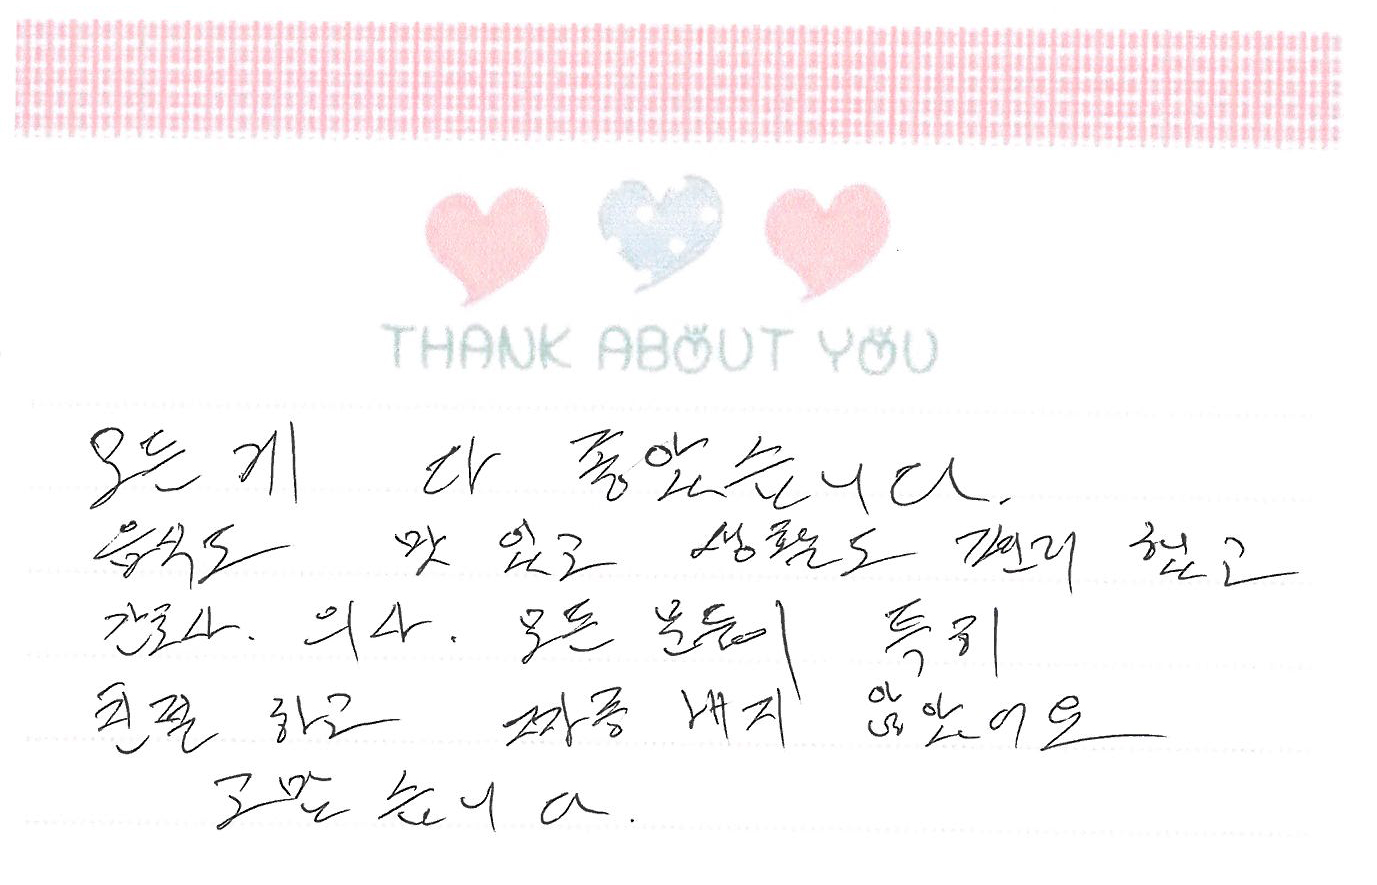 THANK ABOUT YOU
모든게 다 좋았습니다.
음식도 맛 있고 생활도 편리 했고
간호사. 의사. 모든 분들이 특히
친절 하고 짜증 내지 않았어요
고맙습니다.